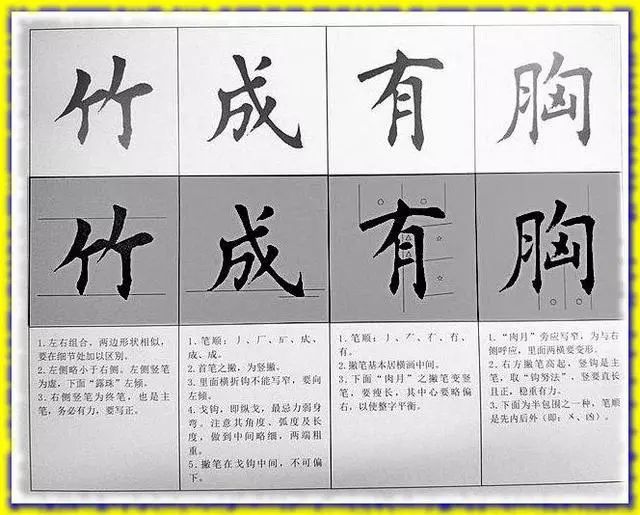 竹 成 有 胸
竹 成 有 胸
1.左右组合，两边形状相似，
要在细节处加以区别。
2.左侧略小于右侧。左侧竖笔
为虚，下面“露珠”左倾。
3.右侧竖笔为终笔，也是主
笔，务必有力，要写正。
1.笔顺：丿、厂、
成、成。
2.首笔之撇，为竖撇。
3.里面横折钩不能写窄，要向
左倾。
4.戈钩，即纵戈，最忌力弱身
弯。注意其角度、弧度及长
度，做到中间略细，两端粗
重。
5.撇笔在戈钩中间，不可偏
下。
1.笔顺：丿、𠂇、冇、有、
有。
2.撇笔基本居横画中间。
3.下面“肉月”之撇笔变竖
笔，要瘦长，其中心要略偏
右，以使整字平衡。
1.“肉月”旁应写窄，为与右
侧呼应，里面两横要变形。
2.右方撇笔高起，竖钩是主
笔，取“钩努法”，竖要直长
且正，稳重有力。
3.下面为半包围之一种，笔顺
是先内后外（即：㐅、凶）。